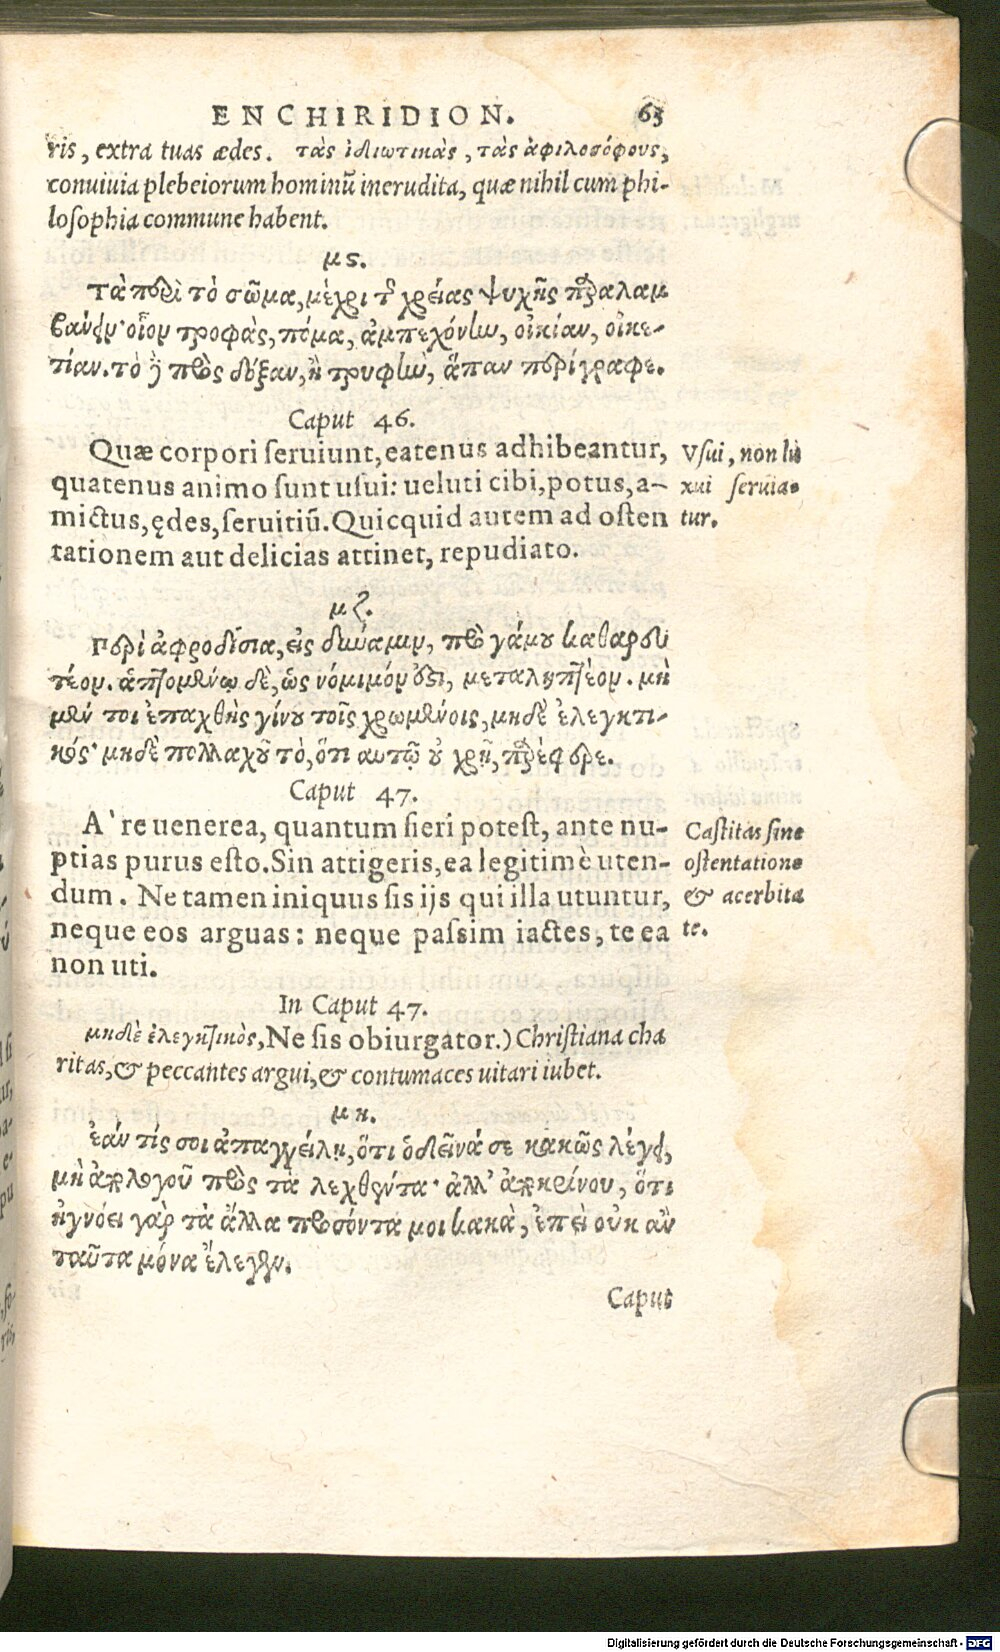 ENCHIRIDION. 65
ris, extra tuas ædes. τὰς ἰδιωτικὰς, τὰς ἀφιλοσόφους,
conuiuia plebeiorum hominũ inerudita, quæ nihil cum phi-
losophia commune habent.
μς.
Τὰ περὶ τὸ σῶμα, μέχρι τῆς χρείας ψυχῆς παραλαμ
βάνειν· οἷον τροφὰς, πόμα, ἀμπεχόνην, οἰκίαν, οἰκε-
τίαν. τὸ δὲ πρὸς δόξαν, ἢ τρυφὴν, ἅπαν περίγραφε.
Caput 46.
Quæ corpori seruiunt, eatenus adhibeantur,
quatenus animo sunt usui: ueluti cibi, potus, a-
mictus, ędes, seruitiũ. Quicquid autem ad osten
tationem aut delicias attinet, repudiato.
Vsui, non lu
xui seruia-
tur.
μζ.
Περὶ ἀφροδίσια, εἰς δύναμιν, πρὸ γάμου καθαρευ
τέον. ἁπτομένῳ δὲ, ὡς νόμιμόν ἐστι, μεταληπτέον. μὴ
μέν τοι ἐπαχθὴς γίνου τοῖς χρωμένοις, μηδὲ ἐλεγκτι-
κός· μηδὲ πολλαχοῦ τὸ, ὅτι αὐτῷ οὐ χρῇ, παρέφερε.
Caput 47.
A' re uenerea, quantum fieri potest, ante nu-
ptias purus esto. Sin attigeris, ea legitimè uten-
dum. Ne tamen iniquus sis ijs qui illa utuntur,
neque eos arguas: neque passim iactes, te ea
non uti.
Castitas sine
ostentatione
& acerbita
te.
In Caput 47.
μηδὲ ἐλεγκτικὸς, Ne sis obiurgator.) Christiana cha
ritas, & peccantes argui, & contumaces uitari iubet.
μη.
Ἐάν τίς σοι ἀπαγγείλῃ, ὅτι ὁ δεῖνά σε κακῶς λέγει,
μὴ ἀπολογοῦ πρὸς τὰ λεχθέντα· ἀλλ' ἀποκρίνου, ὅτι
ἠγνόει γὰρ τὰ ἄλλα προσόντα μοι κακὰ, ἐπεὶ οὐκ ἂν
ταῦτα μόνα ἔλεγεν.
Caput
Digitalisierung gefördert durch die Deutsche Forschungsgemeinschaft - DFG